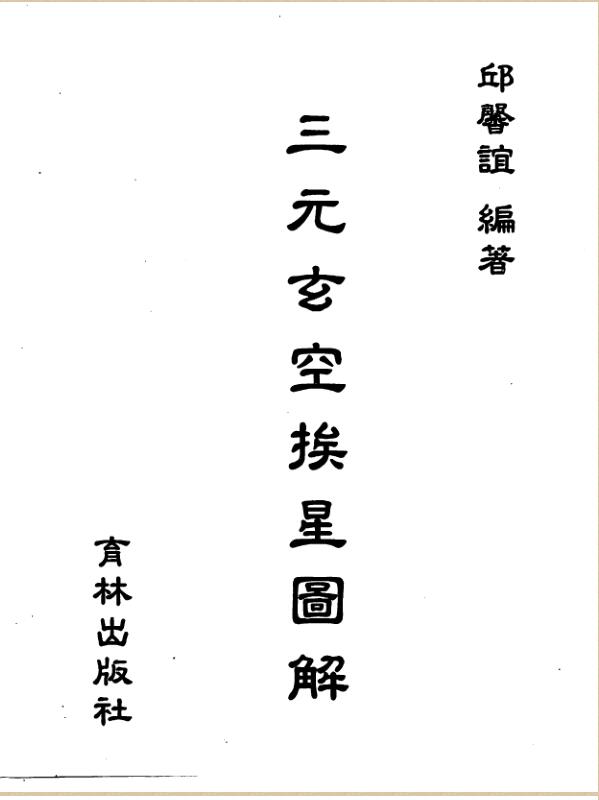 邱馨誼 編著
三元玄空挨星圖解
育林出版社